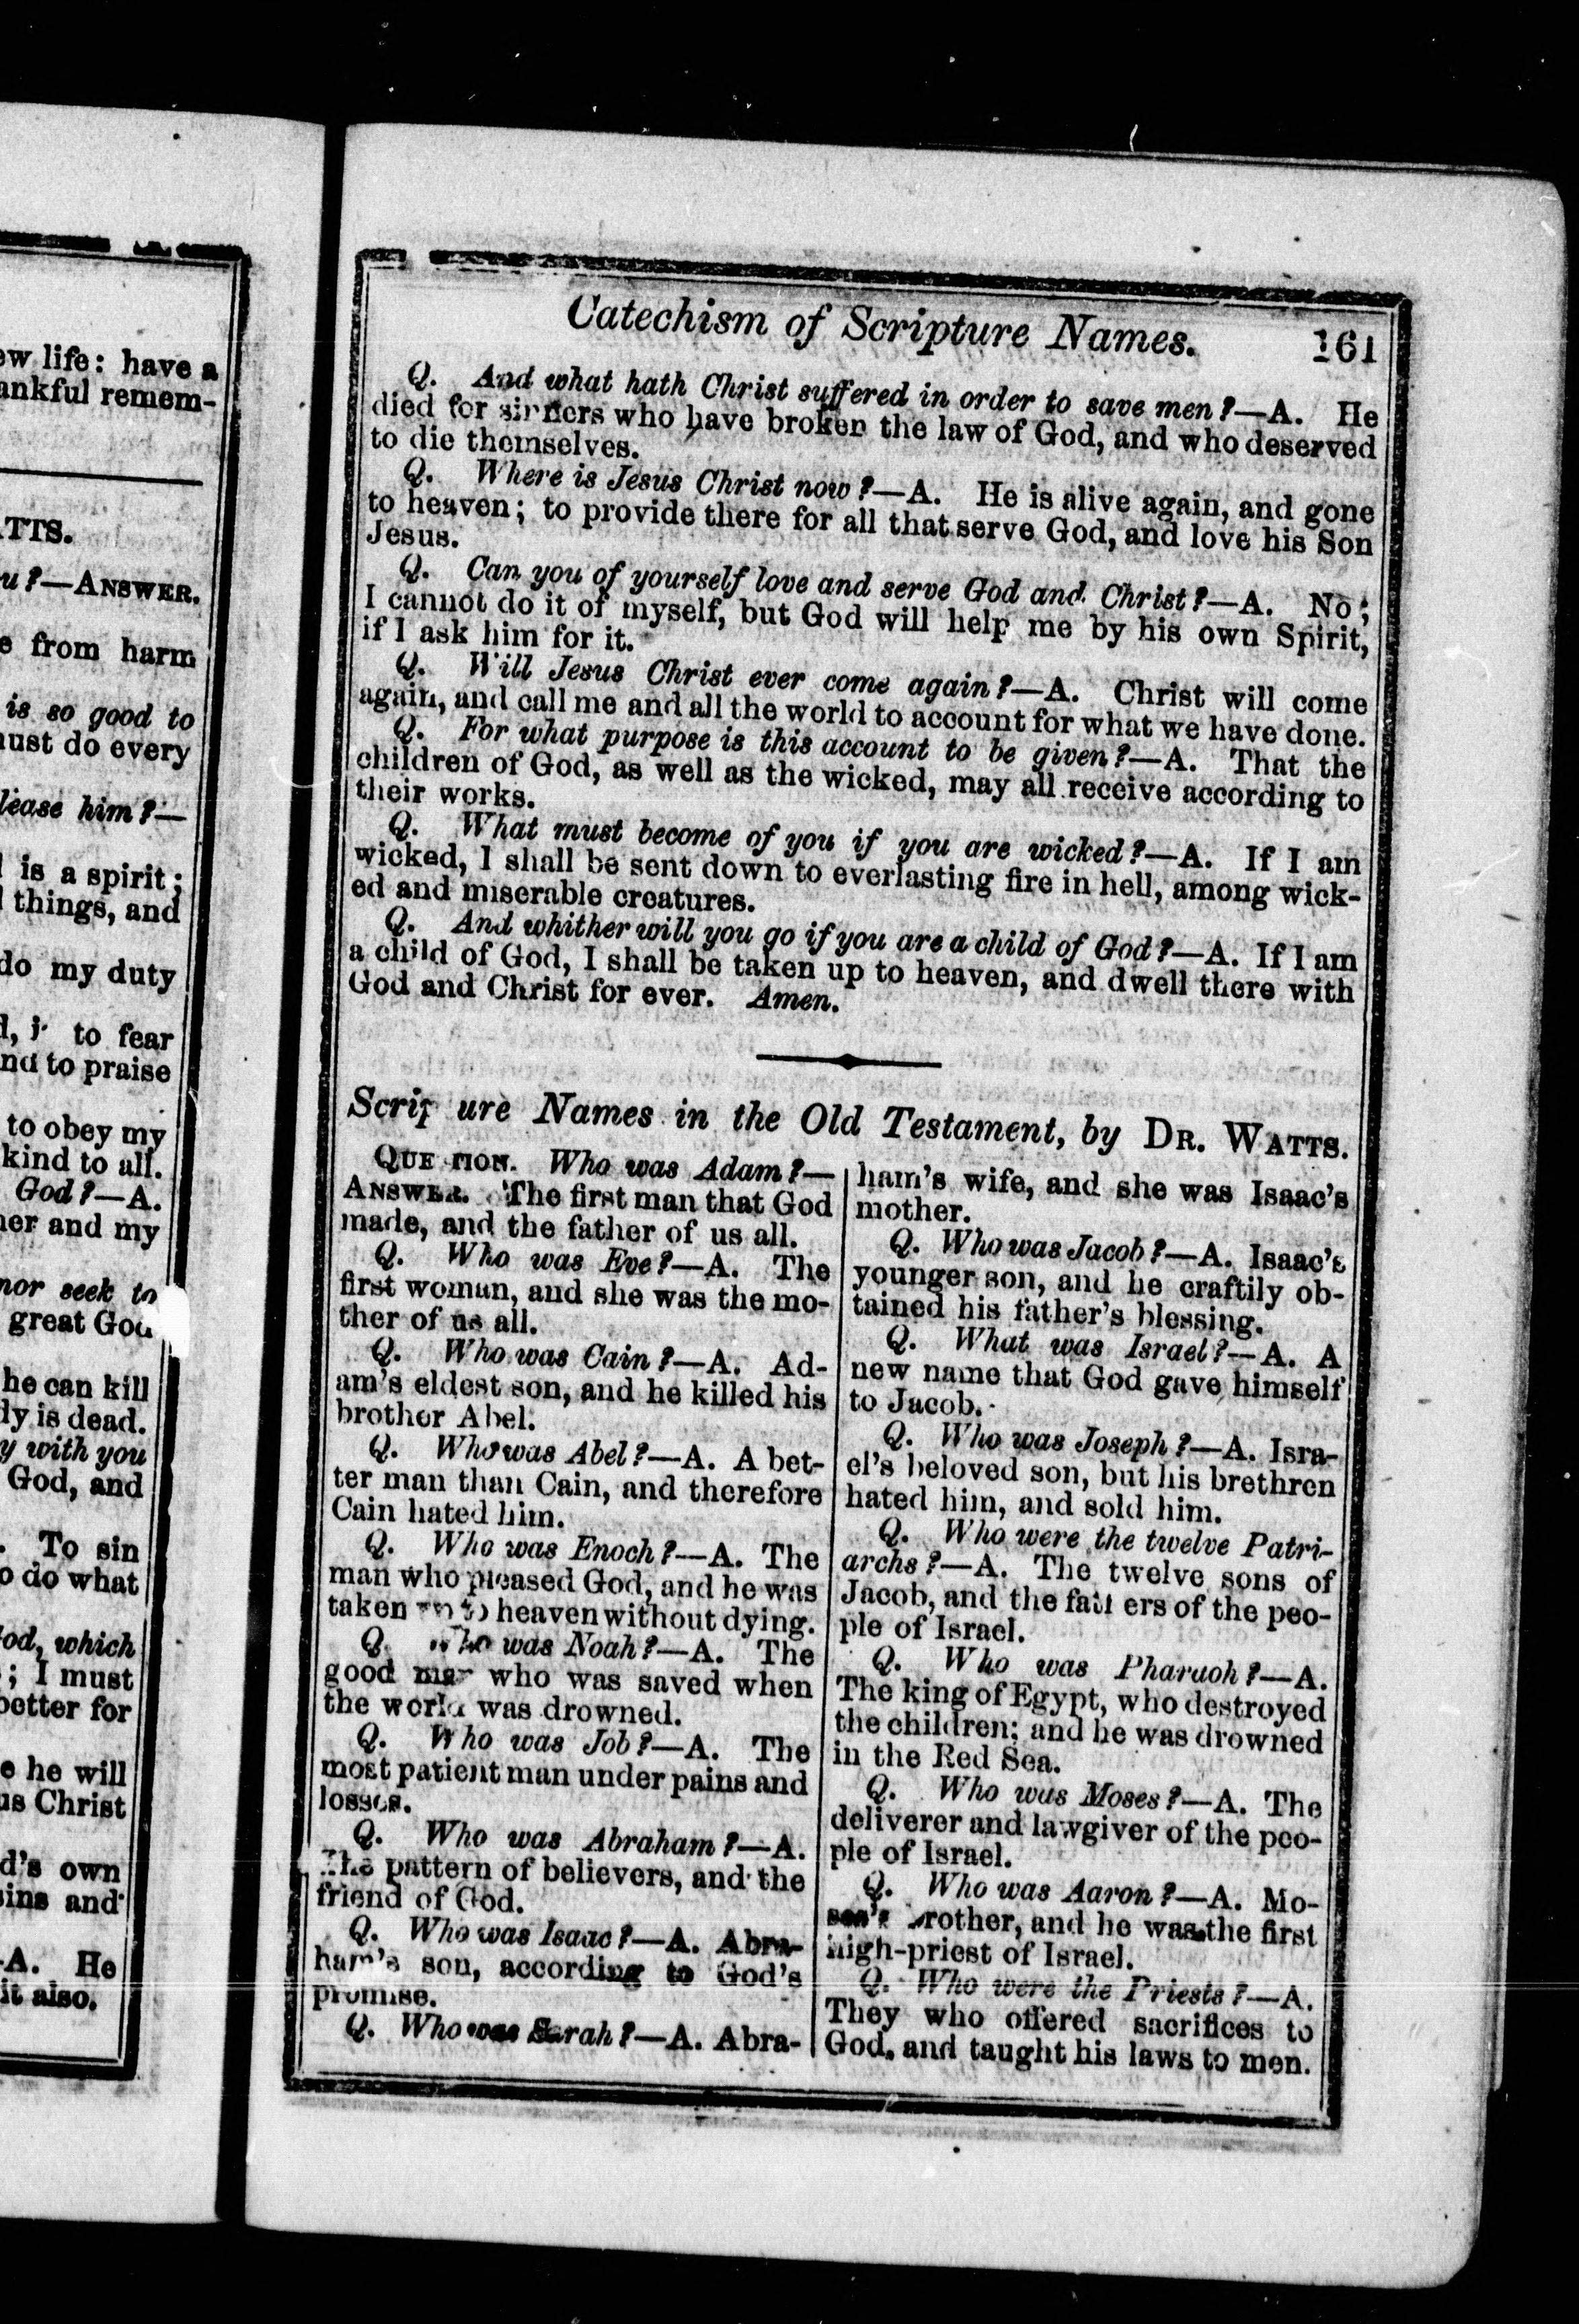 ew life: have a
ankful remem-
TTS.
u?—ANSWER.
e from harm
is so good to
ust do every
lease him?—
is a spirit;
things, and
do my duty
to fear
nd to praise
to obey my
kind to all.
God?—A.
her and my
nor seek to
great God
he can kill
dy is dead.
y with you
God, and
. To sin
o do what
od, which
; I must
better for
e he will
us Christ
d's own
sins and
A. He
it also.
Catechism of Scripture Names. 161
Q. And what hath Christ suffered in order to save men?—A. He
died for sinners who have broken the law of God, and who deserved
to die themselves.
Q. Where is Jesus Christ now?—A. He is alive again, and gone
to heaven; to provide there for all that serve God, and love his Son
Jesus.
Q. Can you of yourself love and serve God and Christ?—A. No;
I cannot do it of myself, but God will help me by his own Spirit,
if I ask him for it.
Q. Will Jesus Christ ever come again?—A. Christ will come
again, and call me and all the world to account for what we have done.
Q. For what purpose is this account to be given?—A. That the
children of God, as well as the wicked, may all receive according to
their works.
Q. What must become of you if you are wicked?—A. If I am
wicked, I shall be sent down to everlasting fire in hell, among wick-
ed and miserable creatures.
Q. And whither will you go if you are a child of God?—A. If I am
a child of God, I shall be taken up to heaven, and dwell there with
God and Christ for ever. Amen.
Scripture Names in the Old Testament, by DR. WATTS.
QUESTION. Who was Adam?—
ANSWER. The first man that God
made, and the father of us all.
Q. Who was Eve?—A. The
first woman, and she was the mo-
ther of us all.
Q. Who was Cain?—A. Ad-
am's eldest son, and he killed his
brother Abel.
Q. Who was Abel?—A. A bet-
ter man than Cain, and therefore
Cain hated him.
Q. Who was Enoch?—A. The
man who pleased God, and he was
taken up to heaven without dying.
Q. Who was Noah?—A. The
good man who was saved when
the world was drowned.
Q. Who was Job?—A. The
most patient man under pains and
losses.
Q. Who was Abraham?—A.
The pattern of believers, and the
friend of God.
Q. Who was Isaac?—A. Abra-
ham's son, according to God's
promise.
Q. Who was Sarah?—A. Abra-
ham's wife, and she was Isaac's
mother.
Q. Who was Jacob?—A. Isaac's
younger son, and he craftily ob-
tained his father's blessing.
Q. What was Israel?—A. A
new name that God gave himself
to Jacob.
Q. Who was Joseph?—A. Isra-
el's beloved son, but his brethren
hated him, and sold him.
Q. Who were the twelve Patri-
archs?—A. The twelve sons of
Jacob, and the fathers of the peo-
ple of Israel.
Q. Who was Pharaoh?—A.
The king of Egypt, who destroyed
the children; and he was drowned
in the Red Sea.
Q. Who was Moses?—A. The
deliverer and lawgiver of the peo-
ple of Israel.
Q. Who was Aaron?—A. Mo-
ses's brother, and he was the first
high-priest of Israel.
Q. Who were the Priests?—A.
They who offered sacrifices to
God, and taught his laws to men.